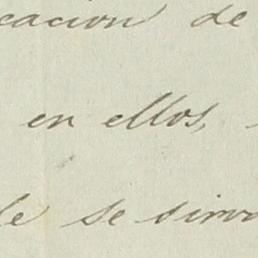 cacion de
en ellos,
de se sirva